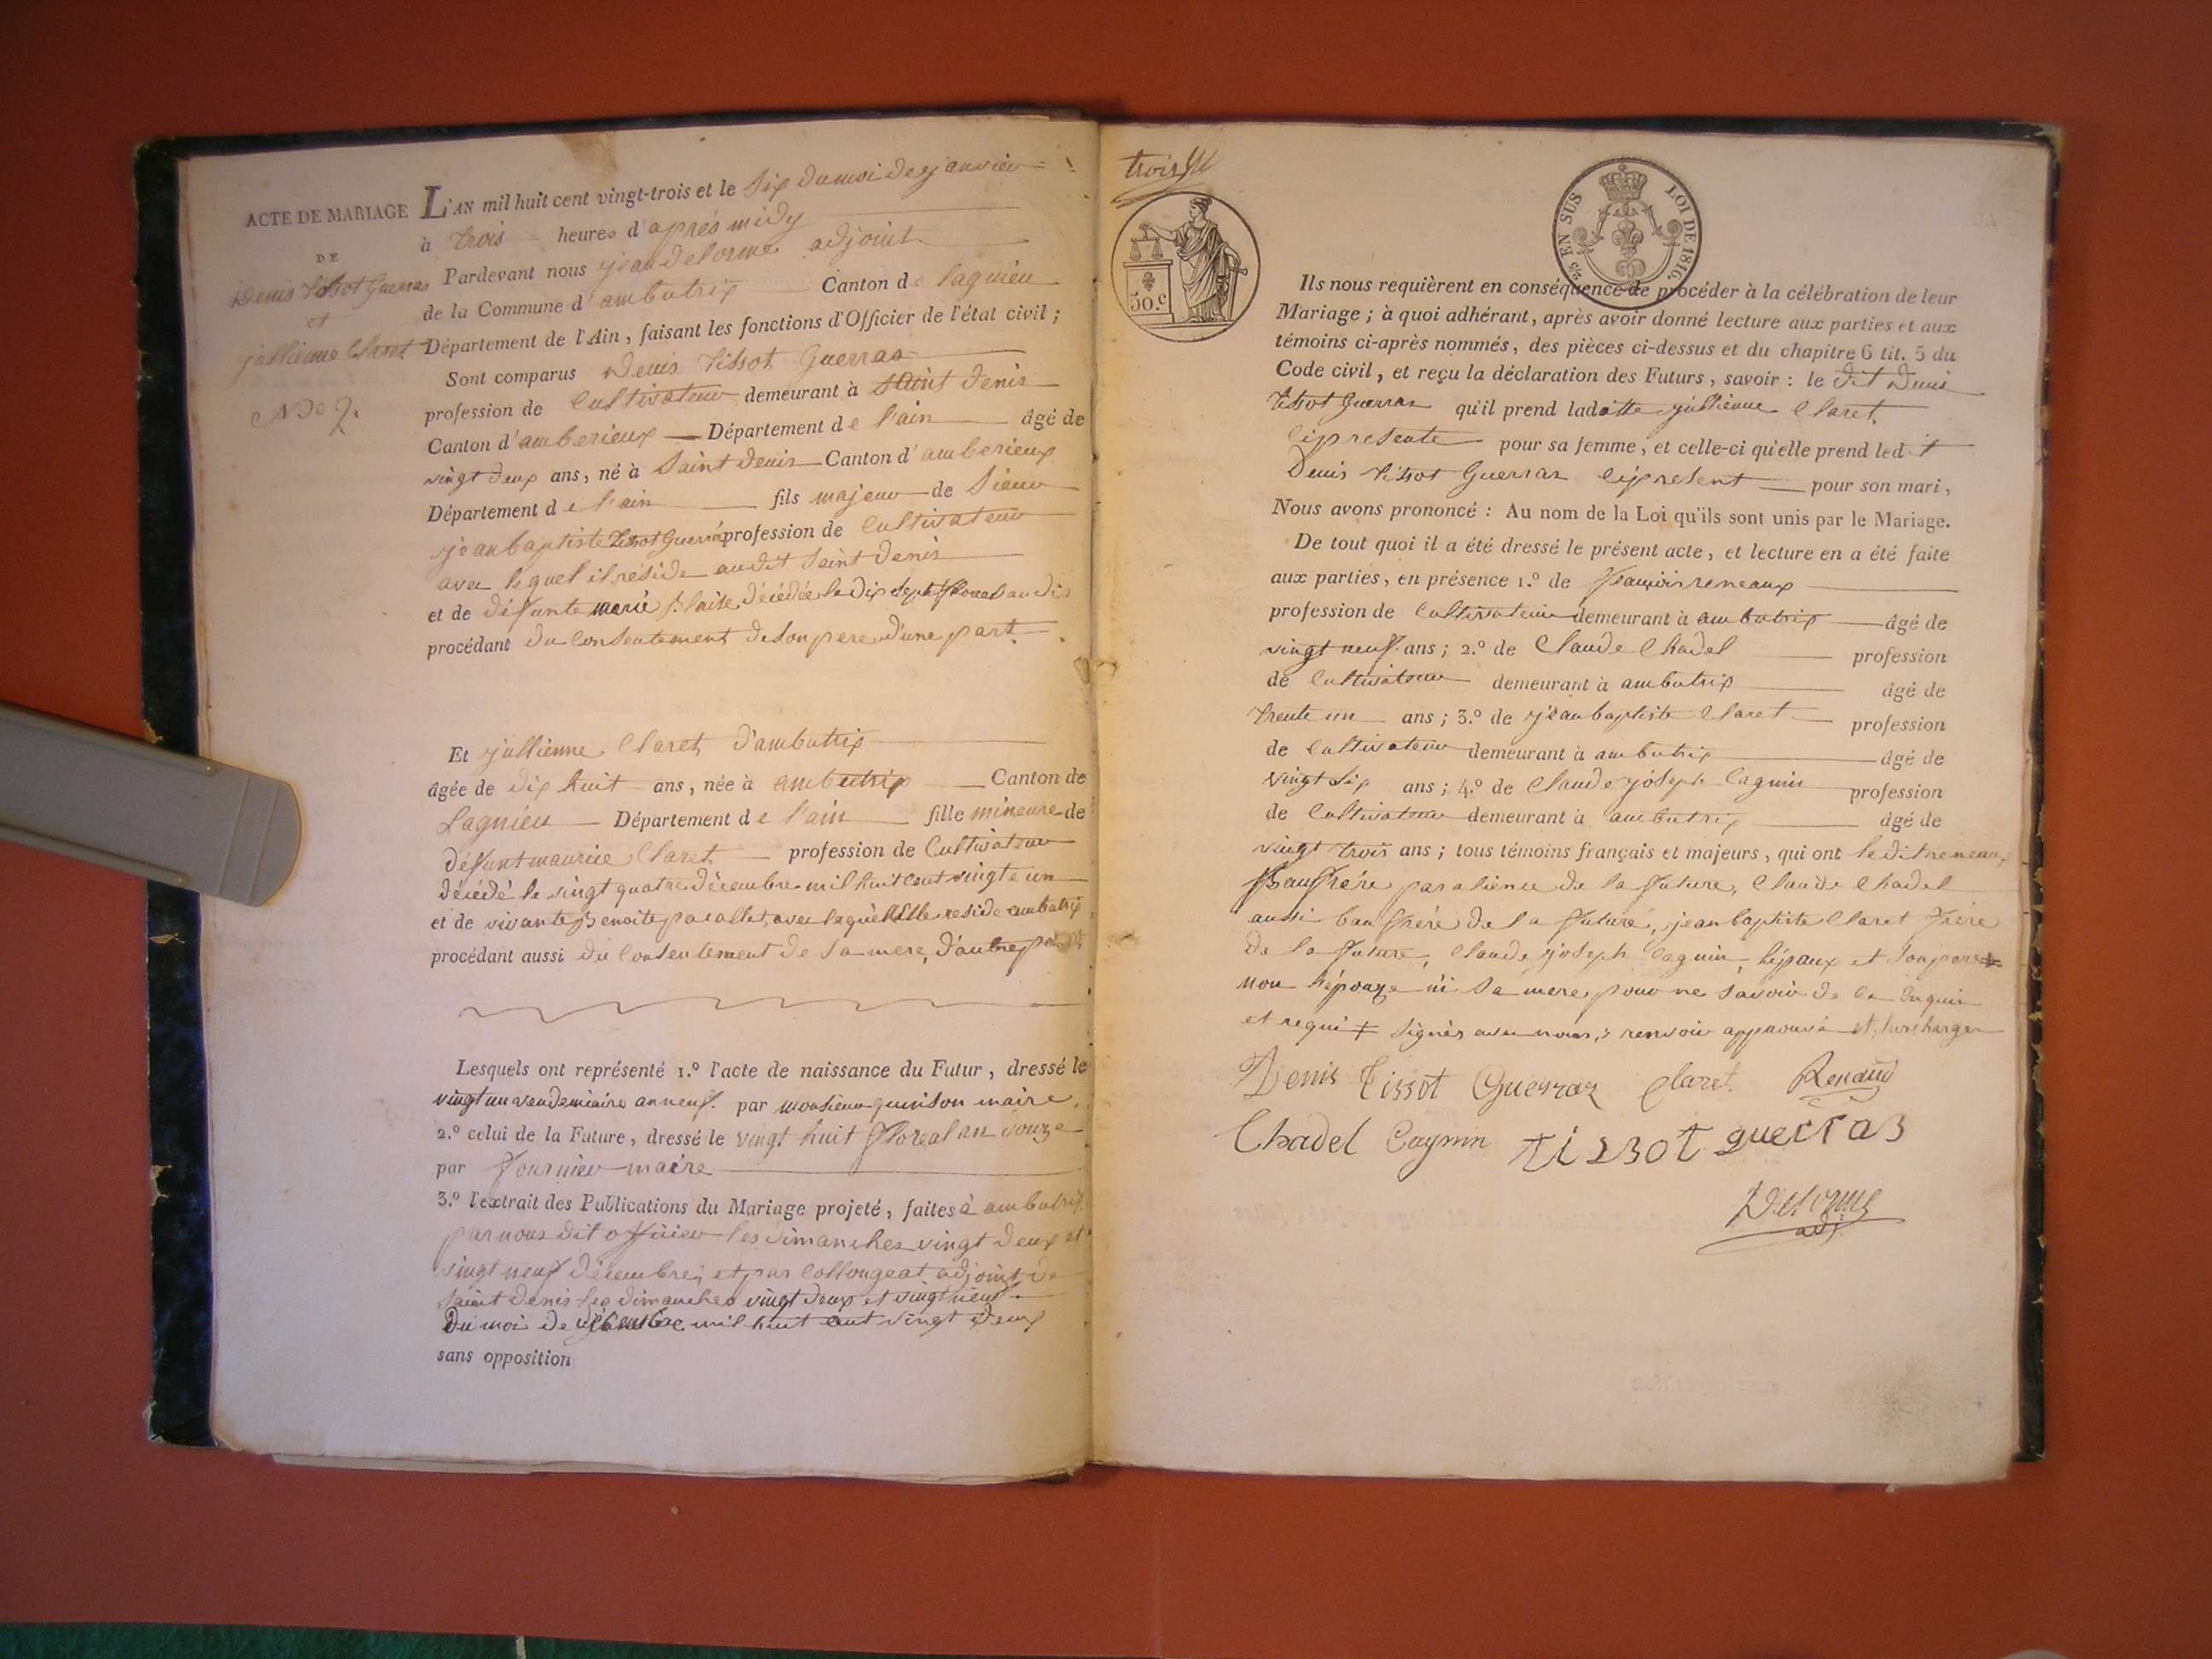 ACTE DE MARIAGE
DE
Denis Tissot Guerras
et
jullienne Claret
No 2.
L'AN mil huit cent vingt-trois et le Six du moi de janvier
à trois heures d'après midy
Pardevant nous jean delorme adjoint
de la Commune d'ambutrix Canton de lagnieu
Département de l'Ain, faisant les fonctions d'Officier de l'état civil;
Sont comparus Denis Tissot Guerras
profession de Cultivateur demeurant à saint denis
Canton d'amberieux Département de l'ain âgé de
vingt deux ans, né à Saint denis Canton d'amberieux
Département de l'ain fils majeur de Sieur
jean baptiste Tissot Guerras profession de Cultivateur
avec lequel il réside audit Saint denis
et de défunte marie décédée le dix sept floreal an dix
procédant du Consentement de son pere d'une part.
Et jullienne Claret d'ambutrix
âgée de dix huit ans, née à ambutrix Canton de
Lagnieu Département de l'ain fille mineure de
défunt maurice Claret profession de Cultivateur
décédé le vingt quatre décembre mil huit cent vingt e un
et de vivante Benoite pacallet, avec laquelle elle reside ambutrix
procédant aussi du Consentement de sa mere, d'autre part
Lesquels ont représenté 1.º l'acte de naissance du Futur, dressé le
vingt un vendemiaire an neuf. par monsieur quinson maire.
2.º celui de la Future, dressé le vingt huit floreal an douze
par fournier maire
3.º l'extrait des Publications du Mariage projeté, faites à ambutrix
par nous dit officier les dimanches vingt deux et
vingt neuf décembre, et par Collongeat adjoint de
Saint denis les dimanches vingt deux et vingt neuf
Du moi de décembre mil huit cent vingt deux
sans opposition
trois
30.c
EN SUS
LOI DE 1816.
Ils nous requièrent en conséquence de procéder à la célébration de leur
Mariage; à quoi adhérant, après avoir donné lecture aux parties et aux
témoins ci-après nommés, des pièces ci-dessus et du chapitre 6 tit. 5 du
Code civil, et reçu la déclaration des Futurs, savoir: le dit Denis
Tissot Guerras qu'il prend ladatte jullienne Claret,
Ciprésente pour sa femme, et celle-ci qu'elle prend ledit
Denis Tissot Guerras ciprésent pour son mari,
Nous avons prononcé: Au nom de la Loi qu'ils sont unis par le Mariage.
De tout quoi il a été dressé le présent acte, et lecture en a été faite
aux parties, en présence 1.º de françois reneaux
profession de Cultivateur demeurant à ambutrix âgé de
vingt neuf ans; 2.º de Claude Chadel profession
de Cultivateur demeurant à ambutrix âgé de
trente un ans; 3.º de jean baptiste Claret profession
de Cultivateur demeurant à ambutrix âgé de
vingt six ans; 4.º de Claude joseph Cagnin profession
de Cultivateur demeurant à ambutrix âgé de
vingt trois ans; tous témoins français et majeurs, qui ont ledit reneaux
Baufrére par alience de la future, Claude Chadel
aussi baufrére de la future, jean baptiste Claret frére
de la future, Claude joseph Cagnin, l'épaux et son pere
non l'épouze ni sa mere pour ne savoir de ce enquis
et requi signés avec nous, renvoie approuvé et surcharger
Denis Tissot Guerraz Claret Renaud
Chadel Cagnin tissot guerras
Delorme
adj.